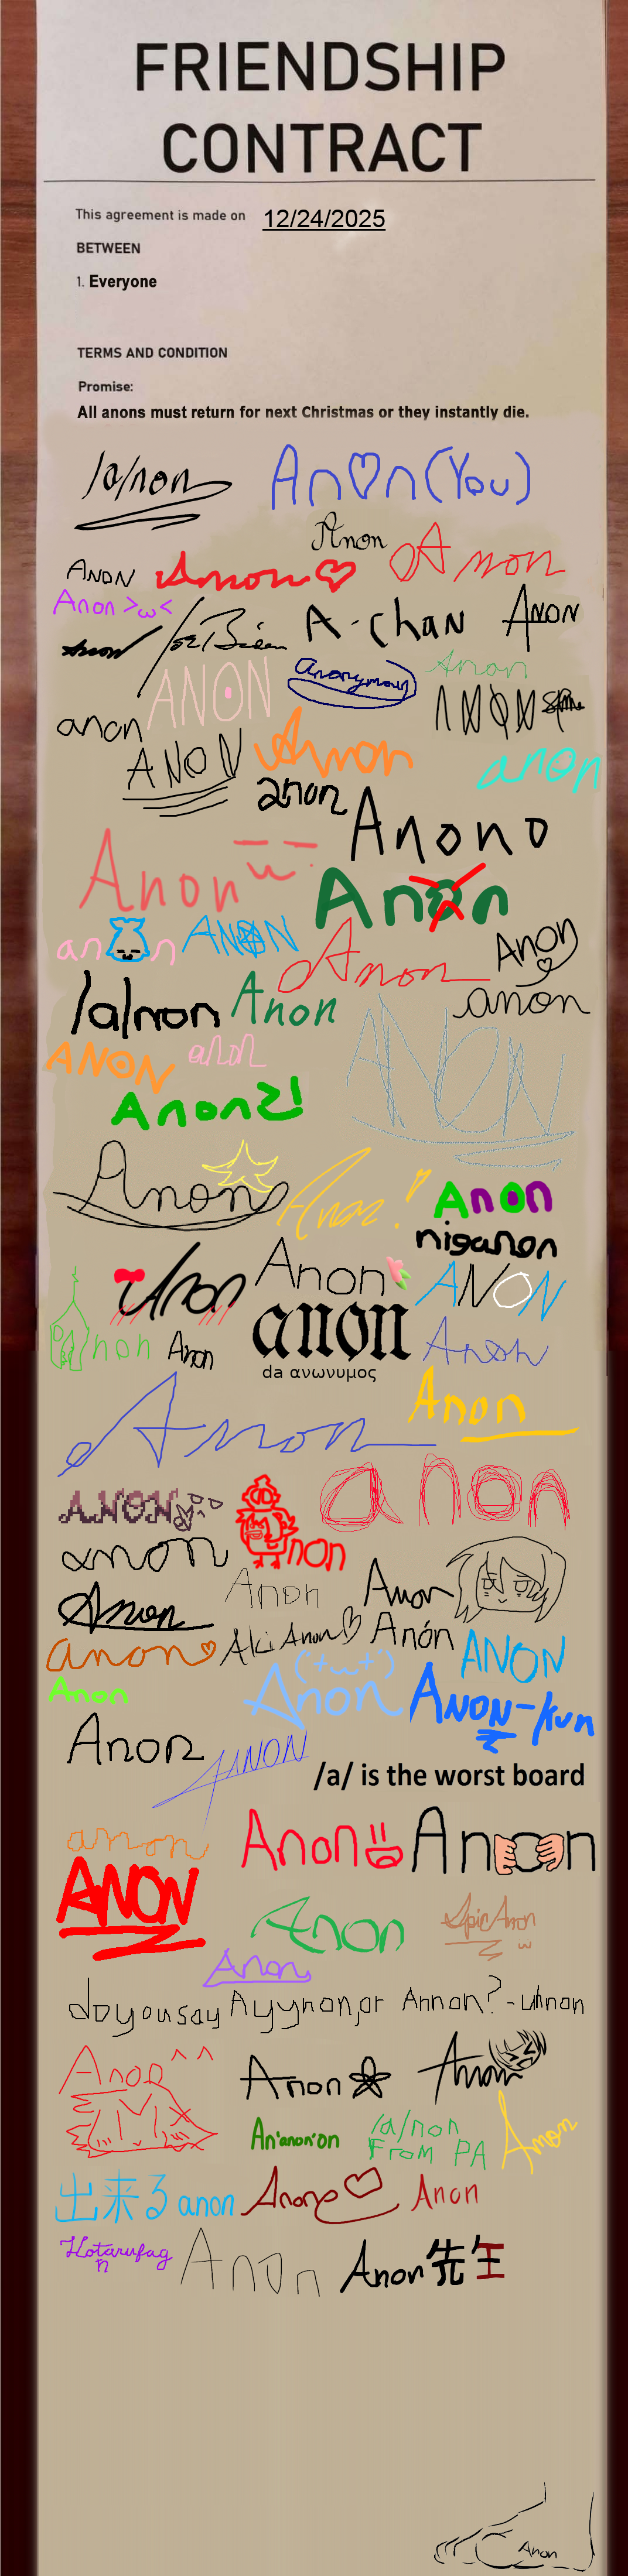 FRIENDSHIP
CONTRACT
This agreement is made on 12/24/2025
BETWEEN
1. Everyone
TERMS AND CONDITION
Promise:
All anons must return for next Christmas or they instantly die.
/a/non
An♡n (You)
Anon
Anon
ANON
Anon♡
Anon >ω<
Anon
Joe Biden
A-chan
ANON
ANON
Anonymous
Anon
anon
ANON
ANON
Anon
anon
anon
Anono
Anon
Anon
an n
ANON
Anon
Anon
/a/non
Anon
anon
ANON
anon
ANON
Anon2!
Anon
Anon!
Anon
niganon
Anon
Anon
ANON
non
Anon
anon
da ανωνυμος
Anon
Anon
Anon
ANON
non
anon
anon
Anon
Anon
Anon
anon♡
Aki Anon♡
Anón
ANON
Anon
Anon
ANON-kun
Anon
ANON
/a/ is the worst board
anon
Anon
Anon
ANON
Anon
Epic Anon
Anon
do you say Ayynon, or Annon? - unnon
Anon ^^
Anon
Anon
An'anon'on
/a/non
FROM PA
Anon
出来る anon
Anon♡
Anon
Hotarufag
Anon
Anon先生
Anon